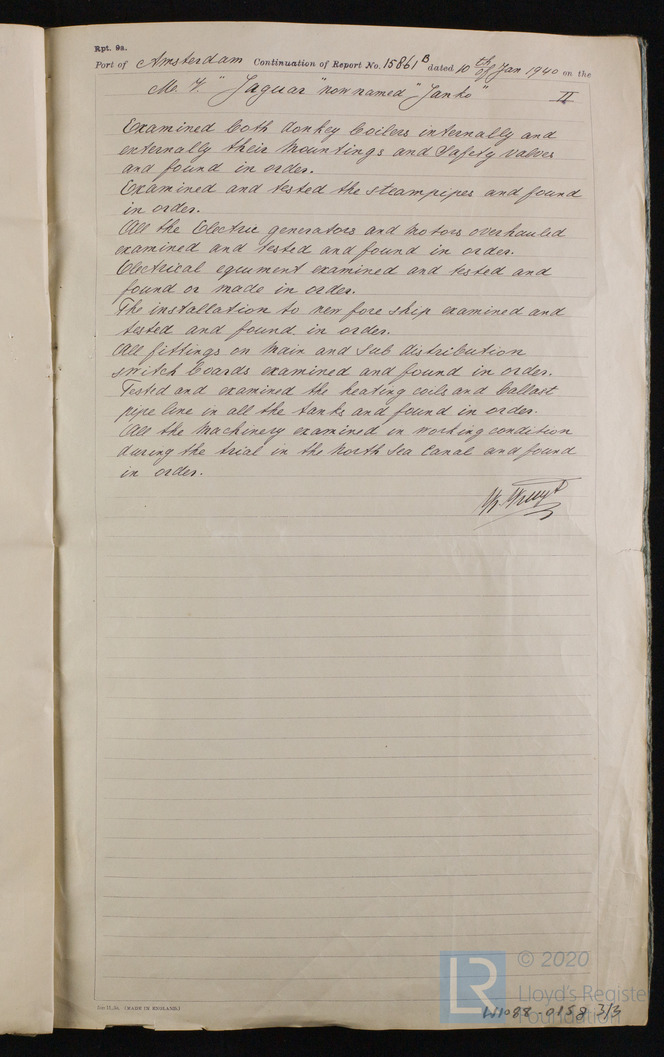 Rpt. 9a.
Port of Amsterdam Continuation of Report No. 15861 B dated 10th of Jan 1940 on the
"Jaguar" now named "Janko" II
Examined both donkey boilers internally and
externally their mountings and Safety valves
and found in order.
Examined and tested the steampipes and found
in order.
All the Electric generators and motors overhauled
examined and tested and found in order.
Electrical equiment examined and tested and
found or made in order.
The installation to new fore ship examined and
tested and found in order.
All fittings on Main and Sub distribution
switch boards examined and found in order.
Tested and examined the heating coils and ballast
pipe line in all the tanks and found in order.
All the Machinery examined in working condition
during the trial in the North Sea Canal and found
in order.
(MADE IN ENGLAND.)
© 2020
LR
Lloyd's Register
Foundation
W1088-0158 3/3